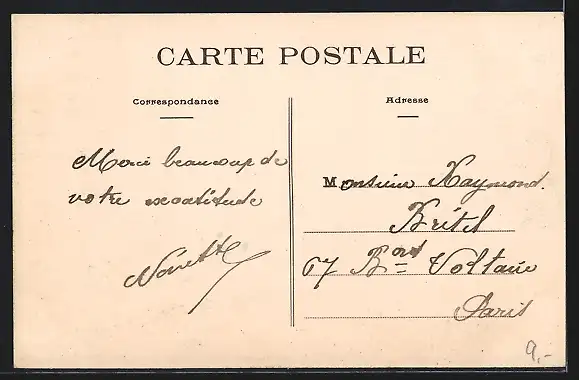 CARTE POSTALE
Correspondance
Merci beaucoup de
votre exactitude
Ninette
Adresse
Monsieur Raymond.
Brétel
67 Bard Voltaire
Paris
9,-